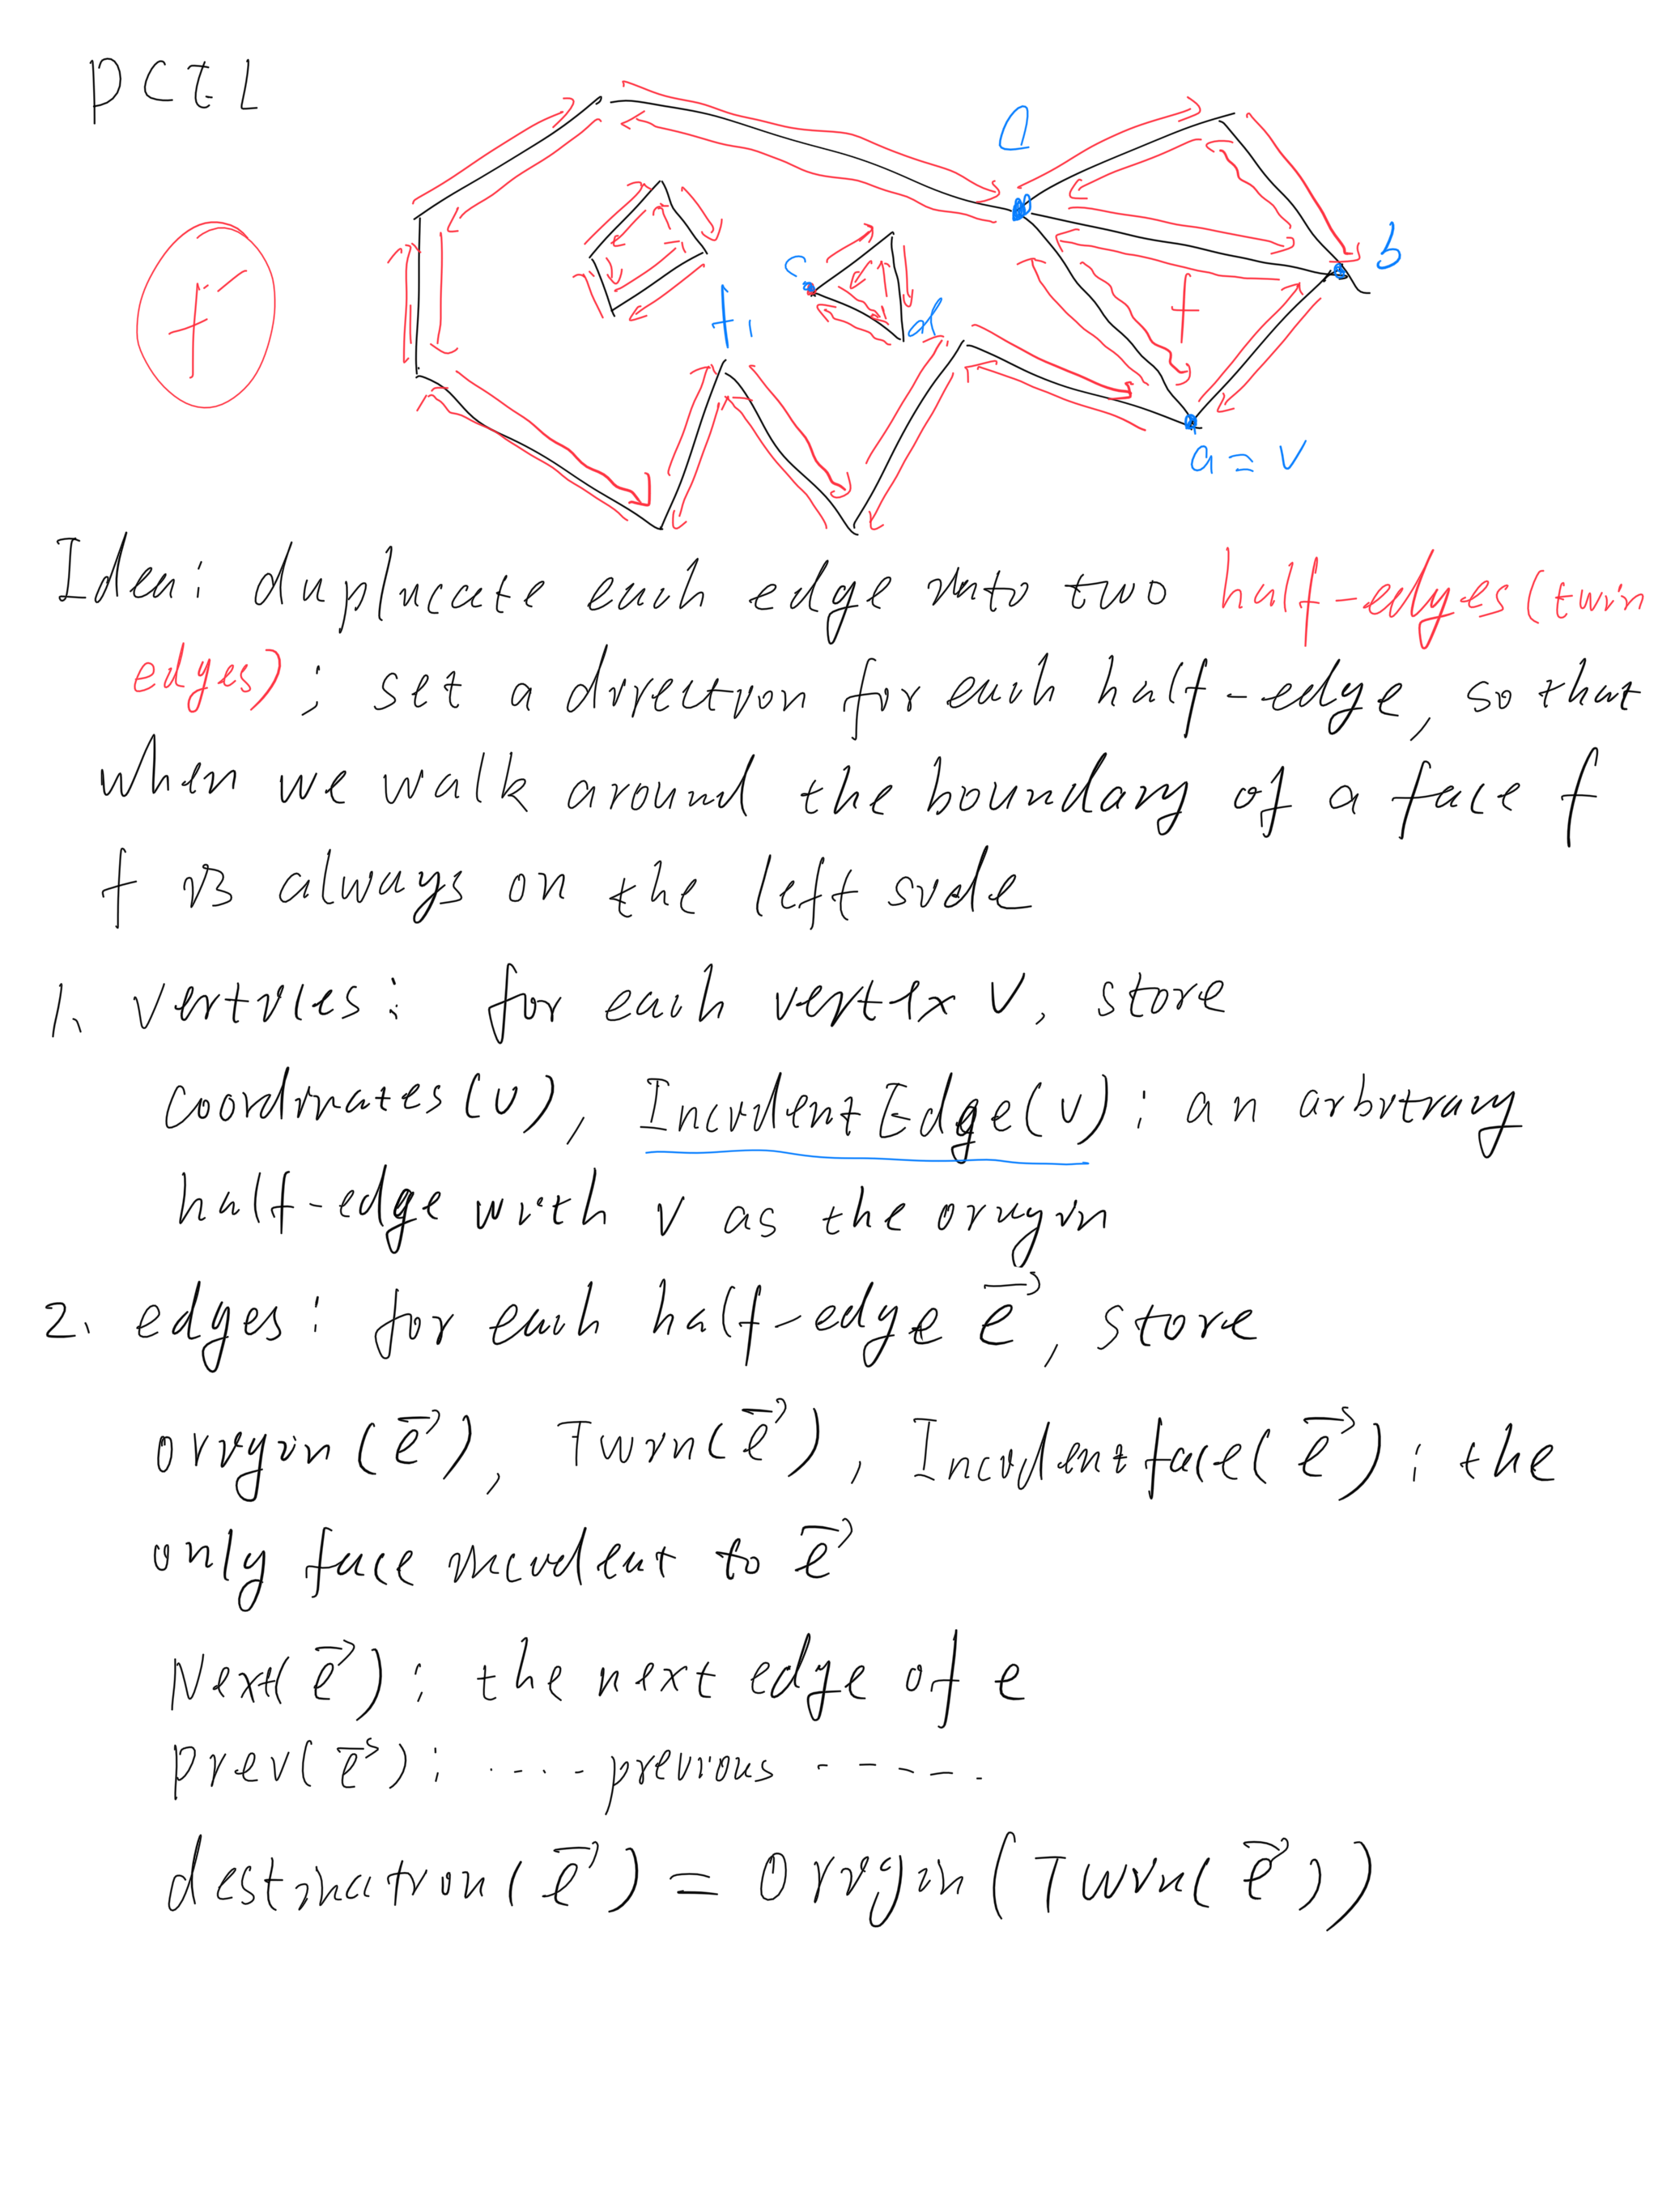 DCEL
a
b
c
d
f
f1
f
a = v
Idea: duplicate each edge into two half-edges (twin
edges); set a direction for each half-edge, so that
when we walk around the boundary of a face f
f is always on the left side
1. vertices: for each vertex v, store
coordinates(v), IncidentEdge(v): an arbitrary
half-edge with v as the origin
2. edges: for each half-edge e⃗, store
origin(e⃗), Twin(e⃗), Incidentface(e⃗): the
only face incident to e⃗
Next(e⃗): the next edge of e
prev(e⃗): .... previous -----.
destination(e⃗) = Origin(Twin(e⃗))